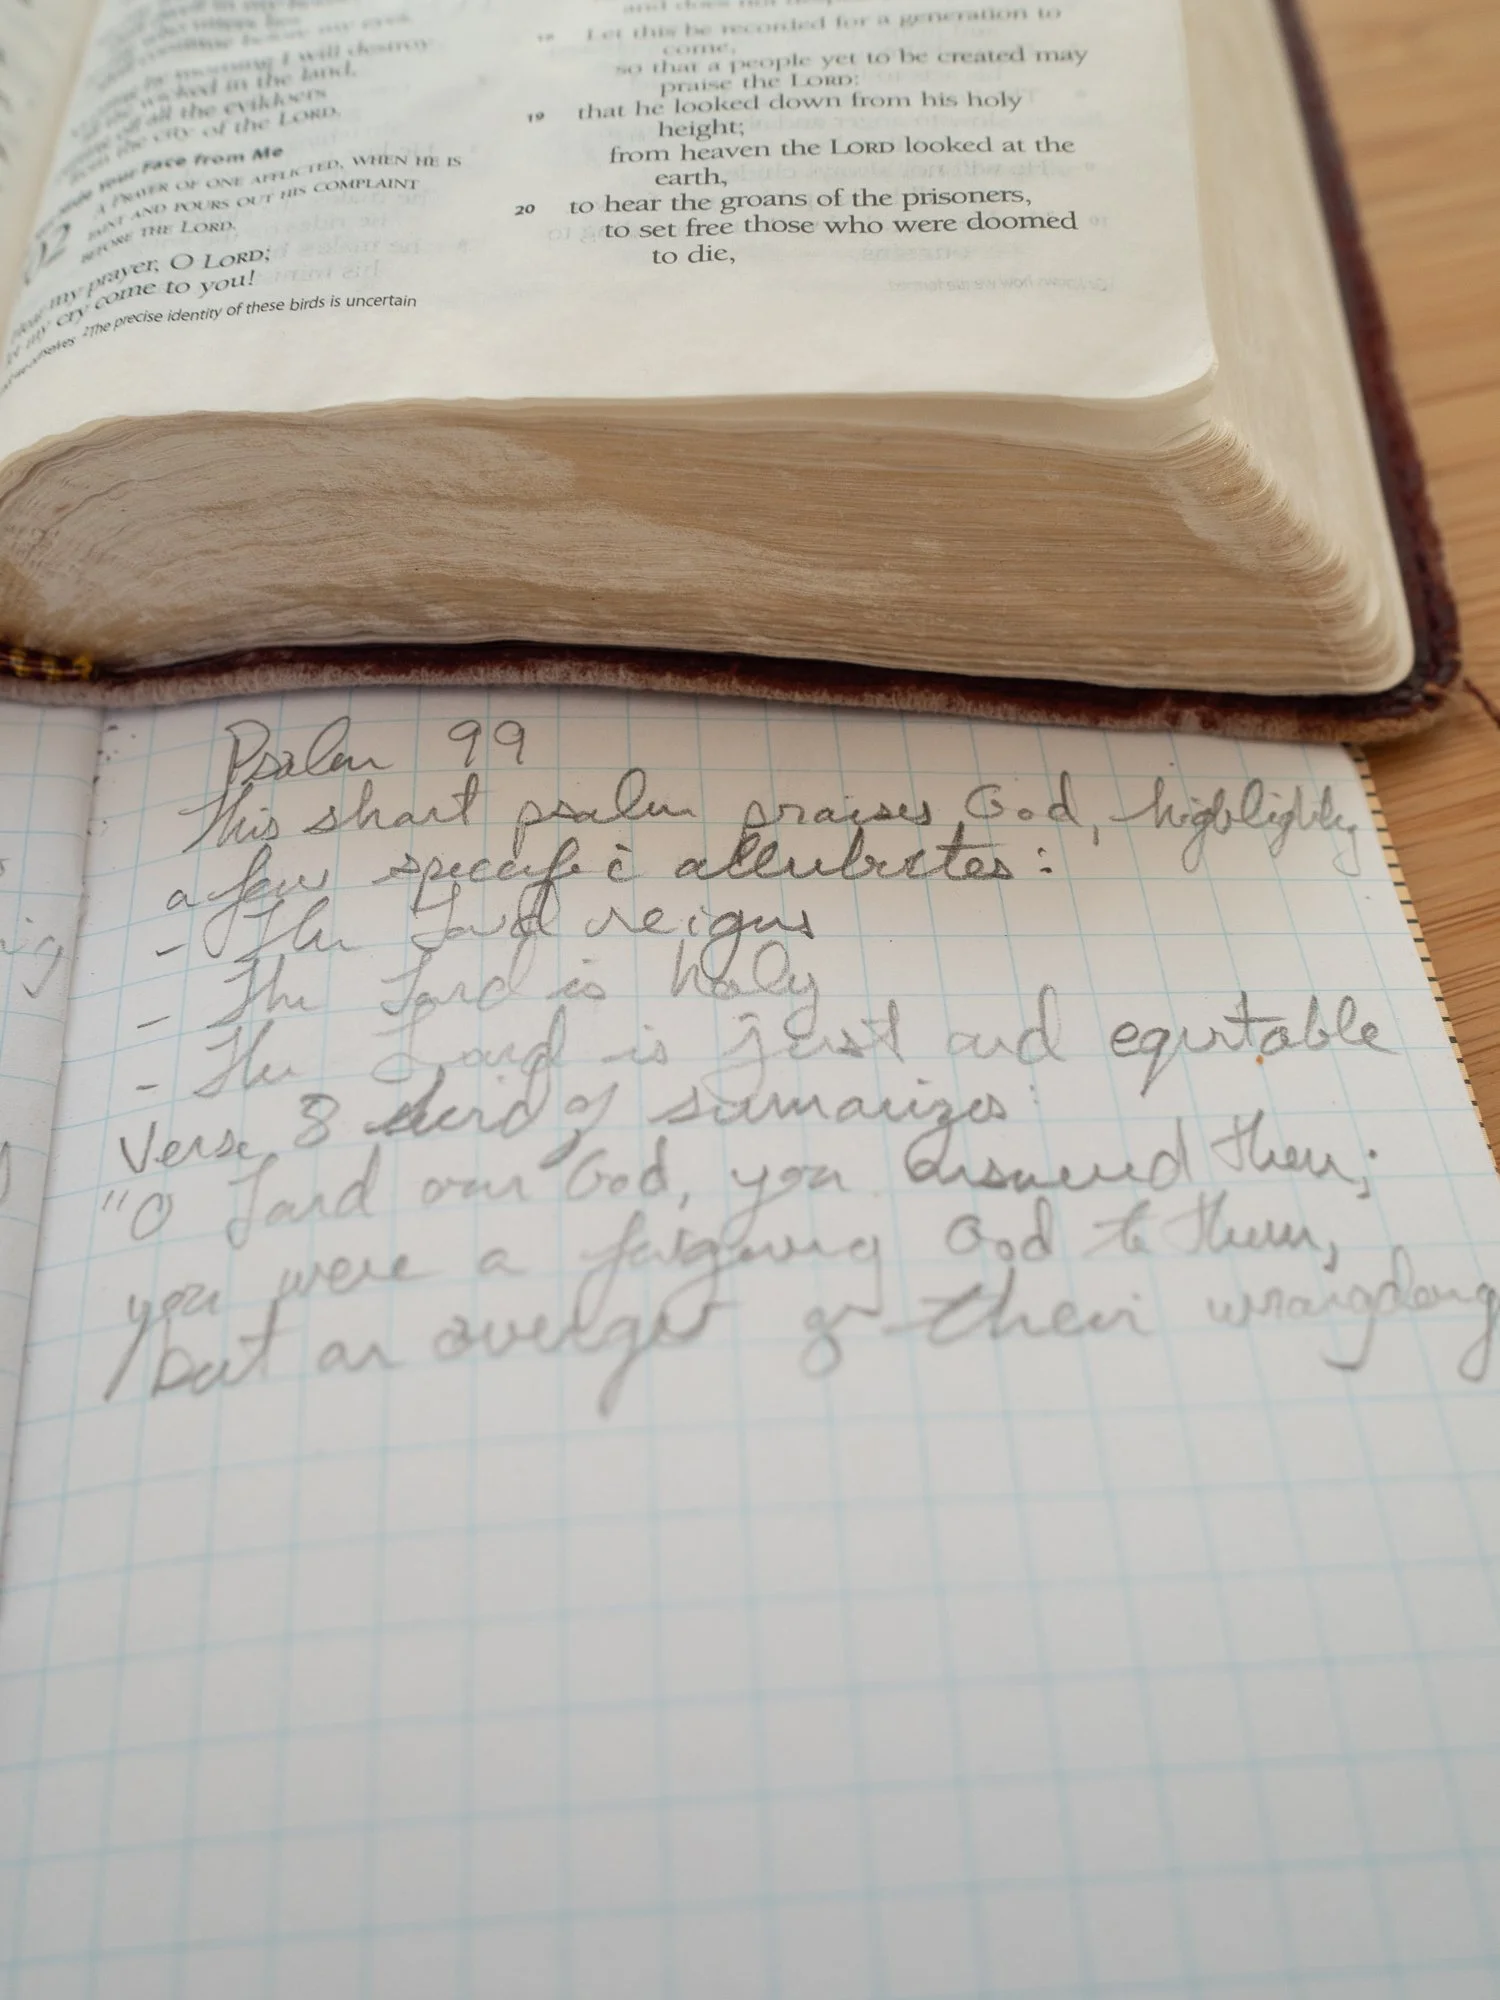 I will destroy
wicked in the land,
off all the evildoers
from the city of the LORD.
Hide Your Face from Me
A PRAYER OF ONE AFFLICTED, WHEN HE IS
FAINT AND POURS OUT HIS COMPLAINT
BEFORE THE LORD.
my prayer, O LORD;
let my cry come to you!
²The precise identity of these birds is uncertain
18 Let this be recorded for a generation to
come,
so that a people yet to be created may
praise the LORD:
19 that he looked down from his holy
height;
from heaven the LORD looked at the
earth,
20 to hear the groans of the prisoners,
to set free those who were doomed
to die,
Psalm 99
This short psalm praises God,
a few specific attributes:
- The Lord reigns
- The Lord is holy
- The Lord is just and equitable
Verse 8 kind of summarizes:
"O Lord our God, you answered them;
you were a forgiving God to them,
but an avenger of their wrongdoing